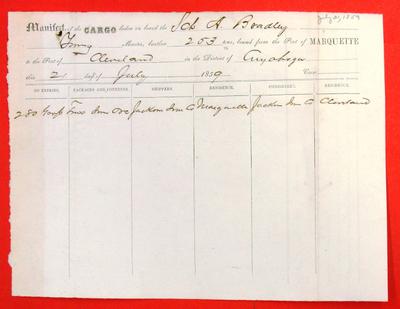 July 2, 1859
Manifest of the CARGO laden on board the Sch A. Bradley
Master, burthen 253 tons, bound from the Port of MARQUETTE
to the Port of Cleveland in the District of Cuyahoga
this 2 day of July 1859
NO ENTRIES. PACKAGES AND CONTENTS. SHIPPERS. RESIDENCE. CONSIGNEES. RESIDENCE.
280 Gross Tons Iron Ore Jackson Iron Co Marquette Jackson Iron Co Cleveland